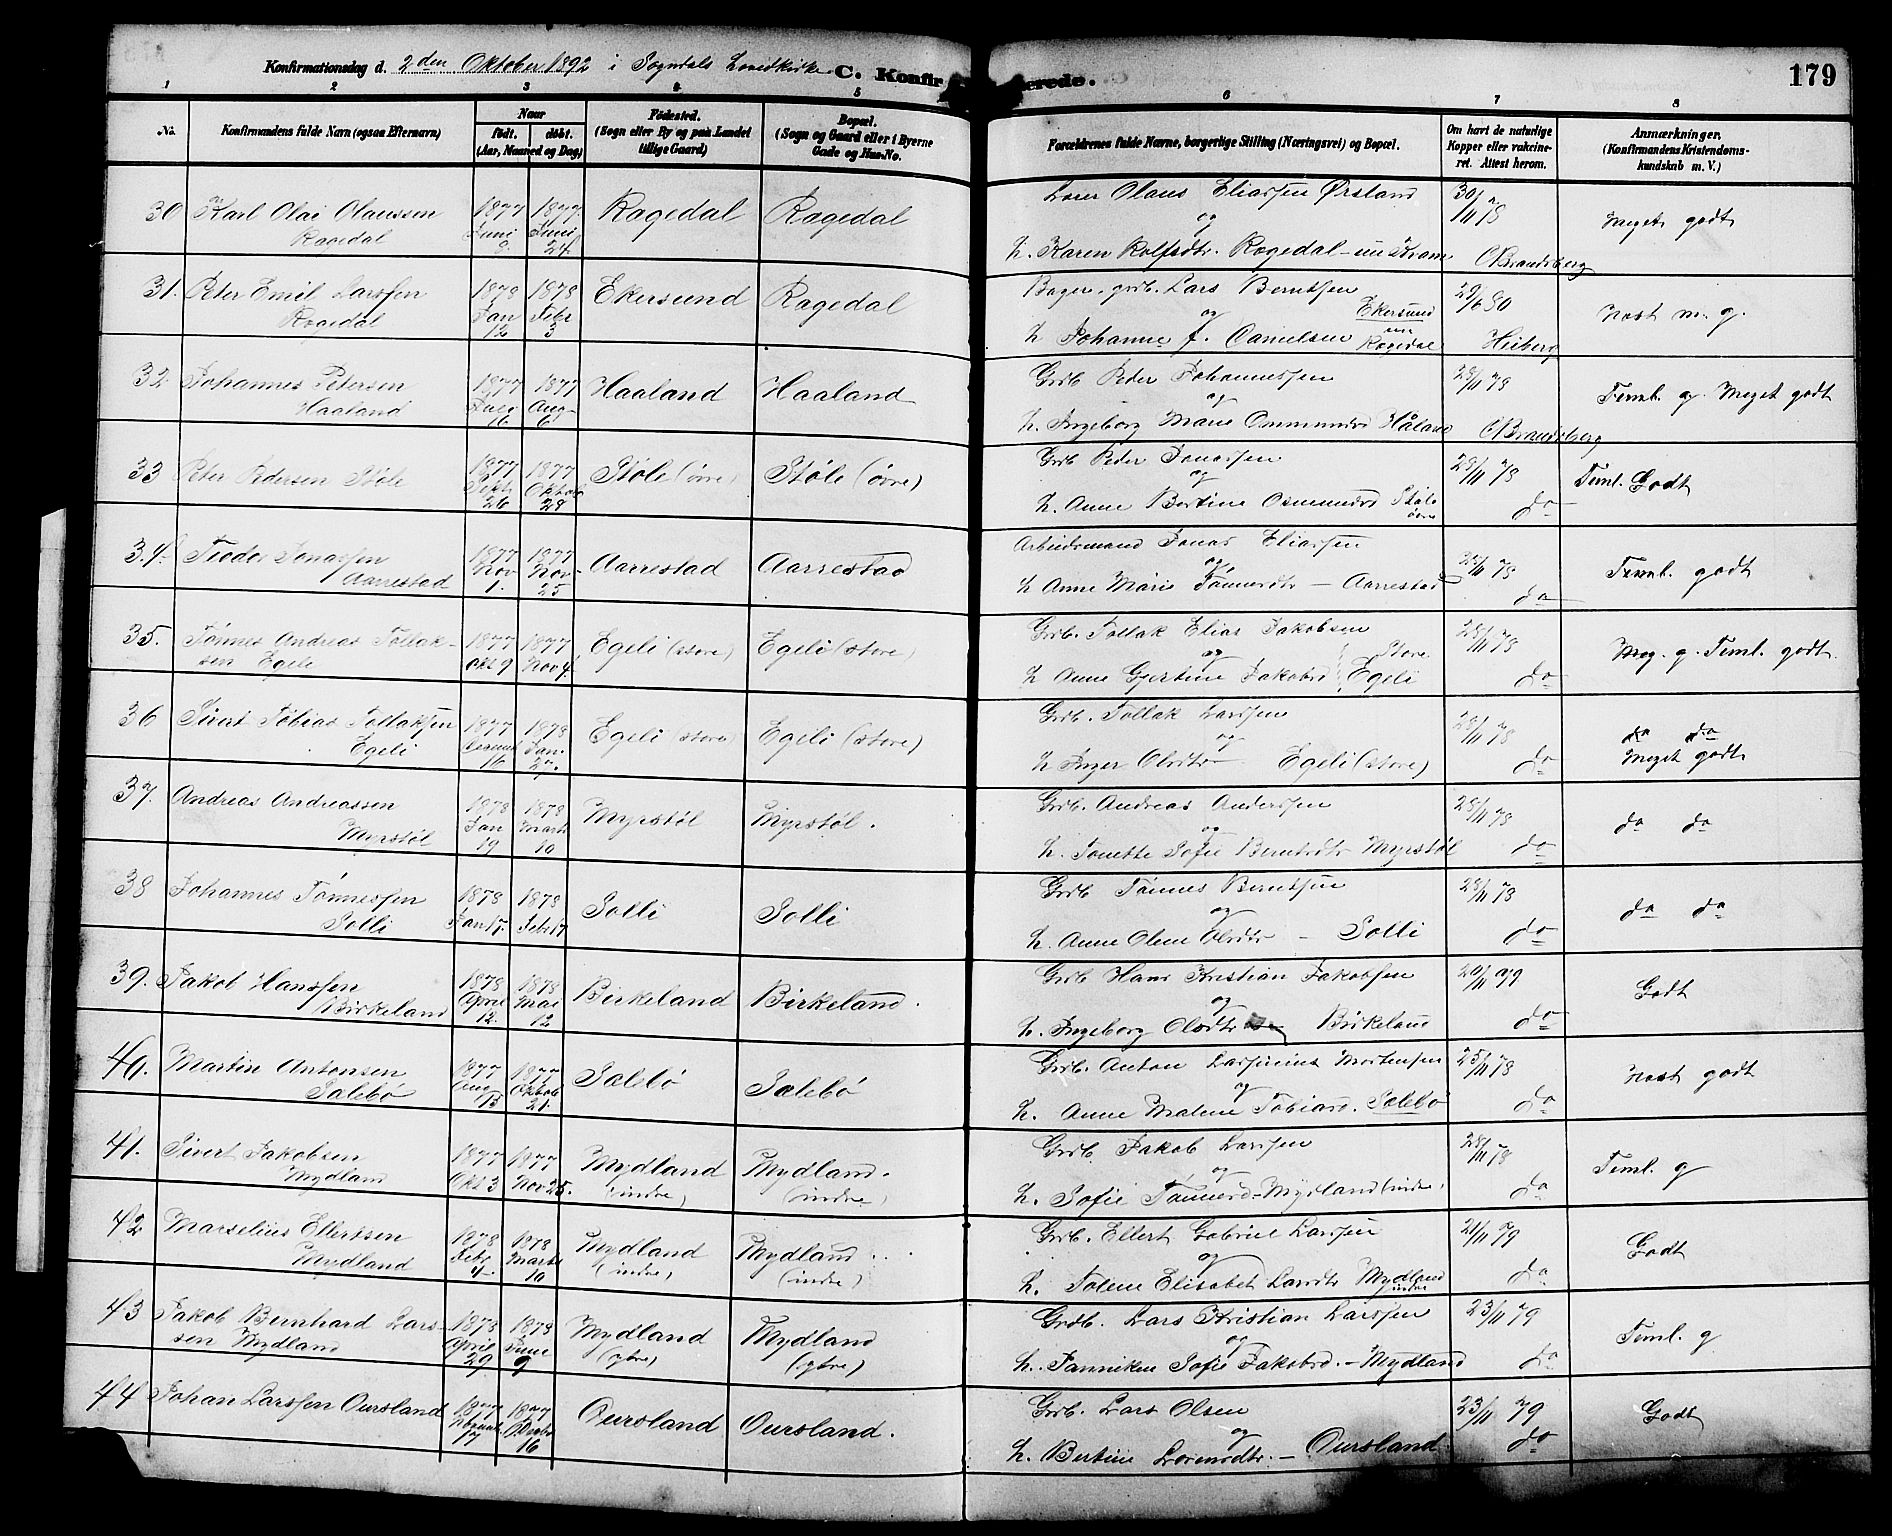 Konfirmationsdag d. 2den Oktober 1892 i Sogndals Hovedkirke C. Konfir erede. 179
1 2 3 4 5 6 7 8
No. Konfirmandens fulde Navn (ogsaa Efternavn) Naar født. døbt. (Aar, Maaned og Dag) Fødested. (Sogn eller By og paa Landet tillige Gaard) Bopæl. (Sogn og Gaard eller i Byerne Gade og Hus-No. Forældrenes fulde Navne, borgerlige Stilling (Næringsvei) og Bopæl. Om havt de naturlige Kopper eller vakcineret. Attest herom. Anmærkninger. (Konfirmandens Kristendomskundskab m. V.)
30 Karl Olai Olaussen Ragedal 1877 Juni 9 1877 Juni 24 Ragedal Ragedal Olaus Eliassen Ørsland og h. Karen Rolfsdtr. Ragedal 30/11 78 Meget godt
31. Peter Emil Larssen Ragedal 1878 Jan 12 1878 Febr 3 Ekersund Ragedal Bager, grdb. Lars Berntsen Ekersund og h. Johanne f. Danielsen Ragedal 29/6 80 Heiberg Næst m. g.
32 Johannes Petersen Haaland 1877 16 1877 Aug 6 Haaland Haaland Grdb Peder Johannessen og h. Ingeborg Marie Ommundsd Håland 28/11 78 Teml. g. Meget godt
33 Peter Pedersen Støle 1877 Sept 26 1877 Oktob 28 Støle (øvre) Støle (øvre) Grdb Peder Jonassen og h. Anne Bertine Osmundsd Støle øvre 28/11 78 do Teml. Godt
34. Teodor Jonassen Aarrestad 1877 Nov 1. 1877 Nov 25 Aarrestad Aarrestad Arbeidsmand Jonas Eliassen og h Anne Marie Tønnesdtr - Aarrestad 78 do Teml. godt
35. Tønnes Andreas Tollaksen Egeli 1877 Okt 9 1877 Nov 4 Egeli (store) Egeli (store) Grdb. Tollak Elias Jakobsen og h Anne Gjertine Jakobsd Store Egeli 28/11 78 do Meg. g. Teml. godt
36 Sivert Tobias Tollaksen Egeli 1877 16 1878 Jan. 27. Egeli (store) Egeli (store) Grdb. Tollak Larssen og h Inger Olsdtr Egeli (store) 28/11 78 do do do Meget godt
37. Andreas Andreassen Myrstøl 1878 Jan 19 1878 Marts 10 Myrstøl Myrstøl. Grdb. Andreas Anderssen og h. Tonette Sofie Berntsdtr Myrstøl 28/11 78 do do do
38 Johannes Tønnessen Solli 1878 Jan 17. 1878 Febr 17 Solli Solli Grdb Tønnes Berntsen og h. Anne Olene Olsdtr - Solli 28/11 78 do do do
39. Jakob Hanssen Birkeland 1878 April 12. 1878 Mai 12 Birkeland Birkeland. Grdb Hans Kristian Jakobsen og h. Ingeborg Olsdtr Birkeland 79 do Godt
40. Martin Antonsen Salebø 1877 Aug 15 1877 Oktob 21. Salebø Salebø Grdb. Anton Mortensen og h. Anne Malene Tobiasd. Salebø 25/11 78 do Næst godt
41. Sivert Jakobsen Mydland 1877 Okt 3 1877 Nov 25. Mydland (indre) Mydland. (indre) Grdb. Jakob Larssen og h. Sofie Tønnesd - Mydland (indre) 28/11 78 do Teml. g
42 Marselius Ellertsen Mydland 1878 Febr 4 1878 Marts 10 Mydland (indre) Mydland (indre) Grdb. Ellert Gabriel Larssen og h. Tolene Elisabet Larsdtr Mydland indre 21/11 79 do Godt
43 Jakob Bernhard Larssen Mydland 1878 April 29 1878 June 9 Mydland (ytre) Mydland (ytre) Grdb. Lars Kristian Larssen og h. Janniken Sofie Jakobsd. - Mydland 23/11 79 do Teml. g
44 Johan Larssen Oursland 1877 17 1877 16 Oursland Oursland. Grdb. Lars Olsen og h. Bertine Lorensdtr. - Oursland. 23/11 79 do Godt